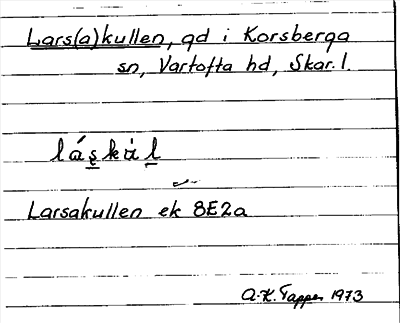 Lars(a)kullen, gd i Korsberga
sn, Vartofta hd, Skar. l.
Larsakullen ek 8E2a
A.-K. Tapper 1973